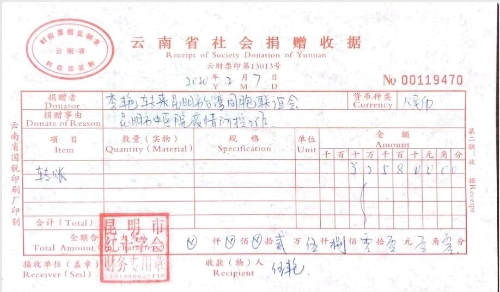 云南省社会捐赠收据
Receipt of Society Donation of Yunnan
云财票印第13013号
2020年2月7日
Y M D
№ 00119470
捐赠者
Donator
昆明市台湾同胞联谊会
货币种类
Currency
人民币
捐赠事由
Donate of Reason
昆明市 疫情防控工作
项目
Item
数量（实物）
Quantity (Material)
规格
Specification
单位
Unit
金额
Amount
千 百 十 万 千 百 十 元 角 分
转账
¥ 2 5 8 0 0 0 0
合计（Total）
金额合
Total Amount
仟 佰 拾 贰 万 伍 仟 捌 佰 零 拾 零 元 零 角 零 分
昆明市
红十字会
财务专用章
接收单位（盖章）
Receiver (Seal)
收款（物）人
Recipient
云南省国税印刷厂印制